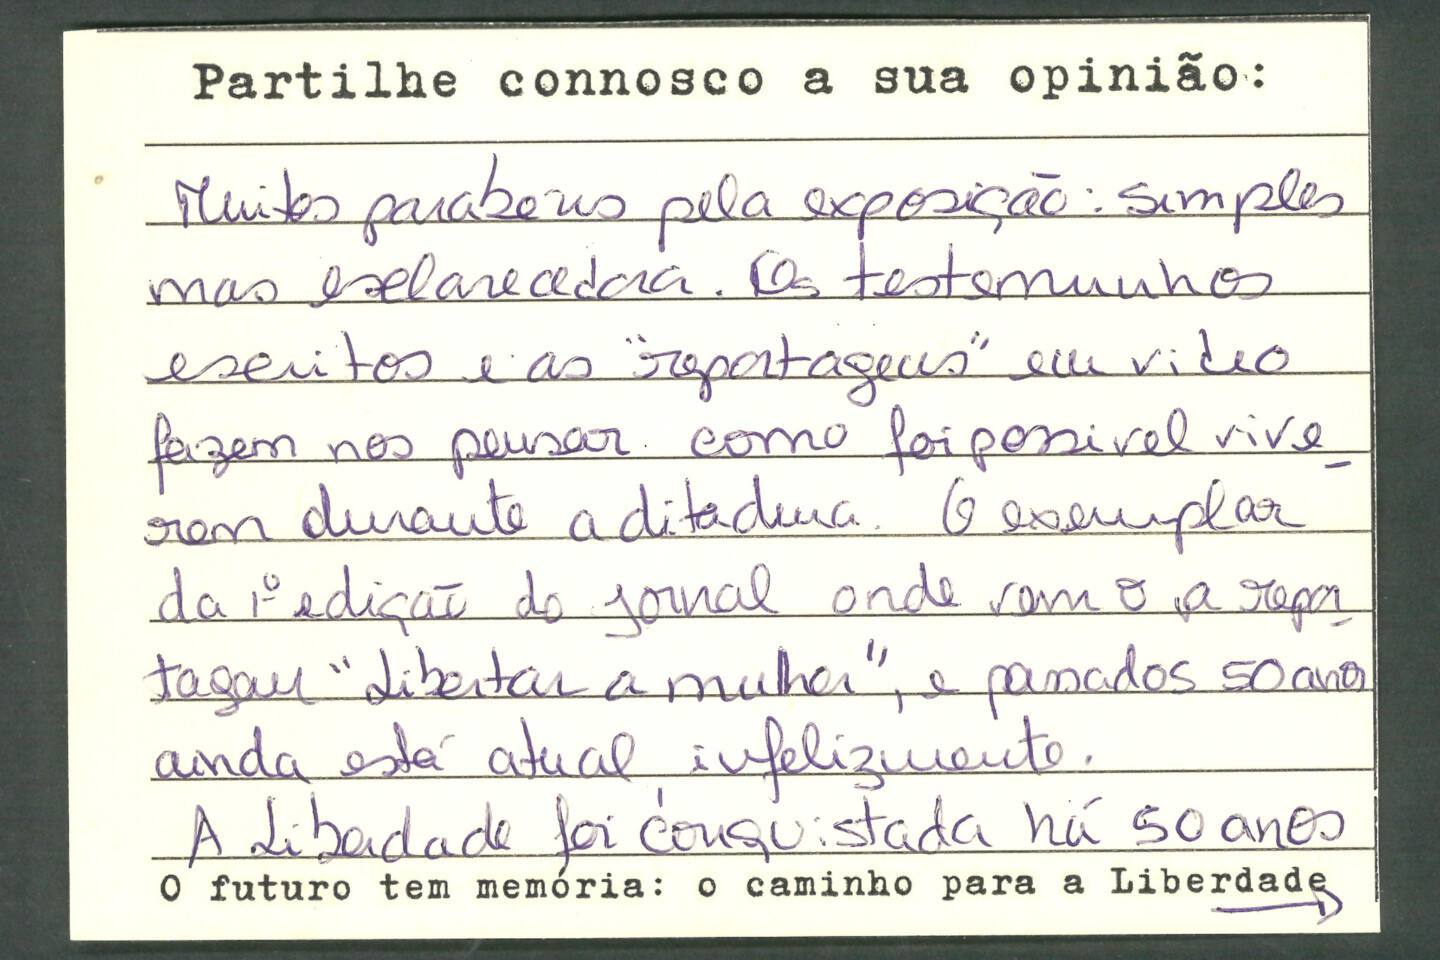 Partilhe connosco a sua opinião:
Muitos parabéns pela exposição: simples
mas esclarecedora. Os testemunhos
escritos e as "reportagens" em video
fazem nos pensar como foi possivel vive_
rem durante a ditadura. O exemplar
da 1ª edição do jornal onde vem a repor_
tagem "Libertar a mulher", e passados 50 anos
ainda está atual infelizmente.
A Liberdade foi conquistada há 50 anos
O futuro tem memória: o caminho para a Liberdade